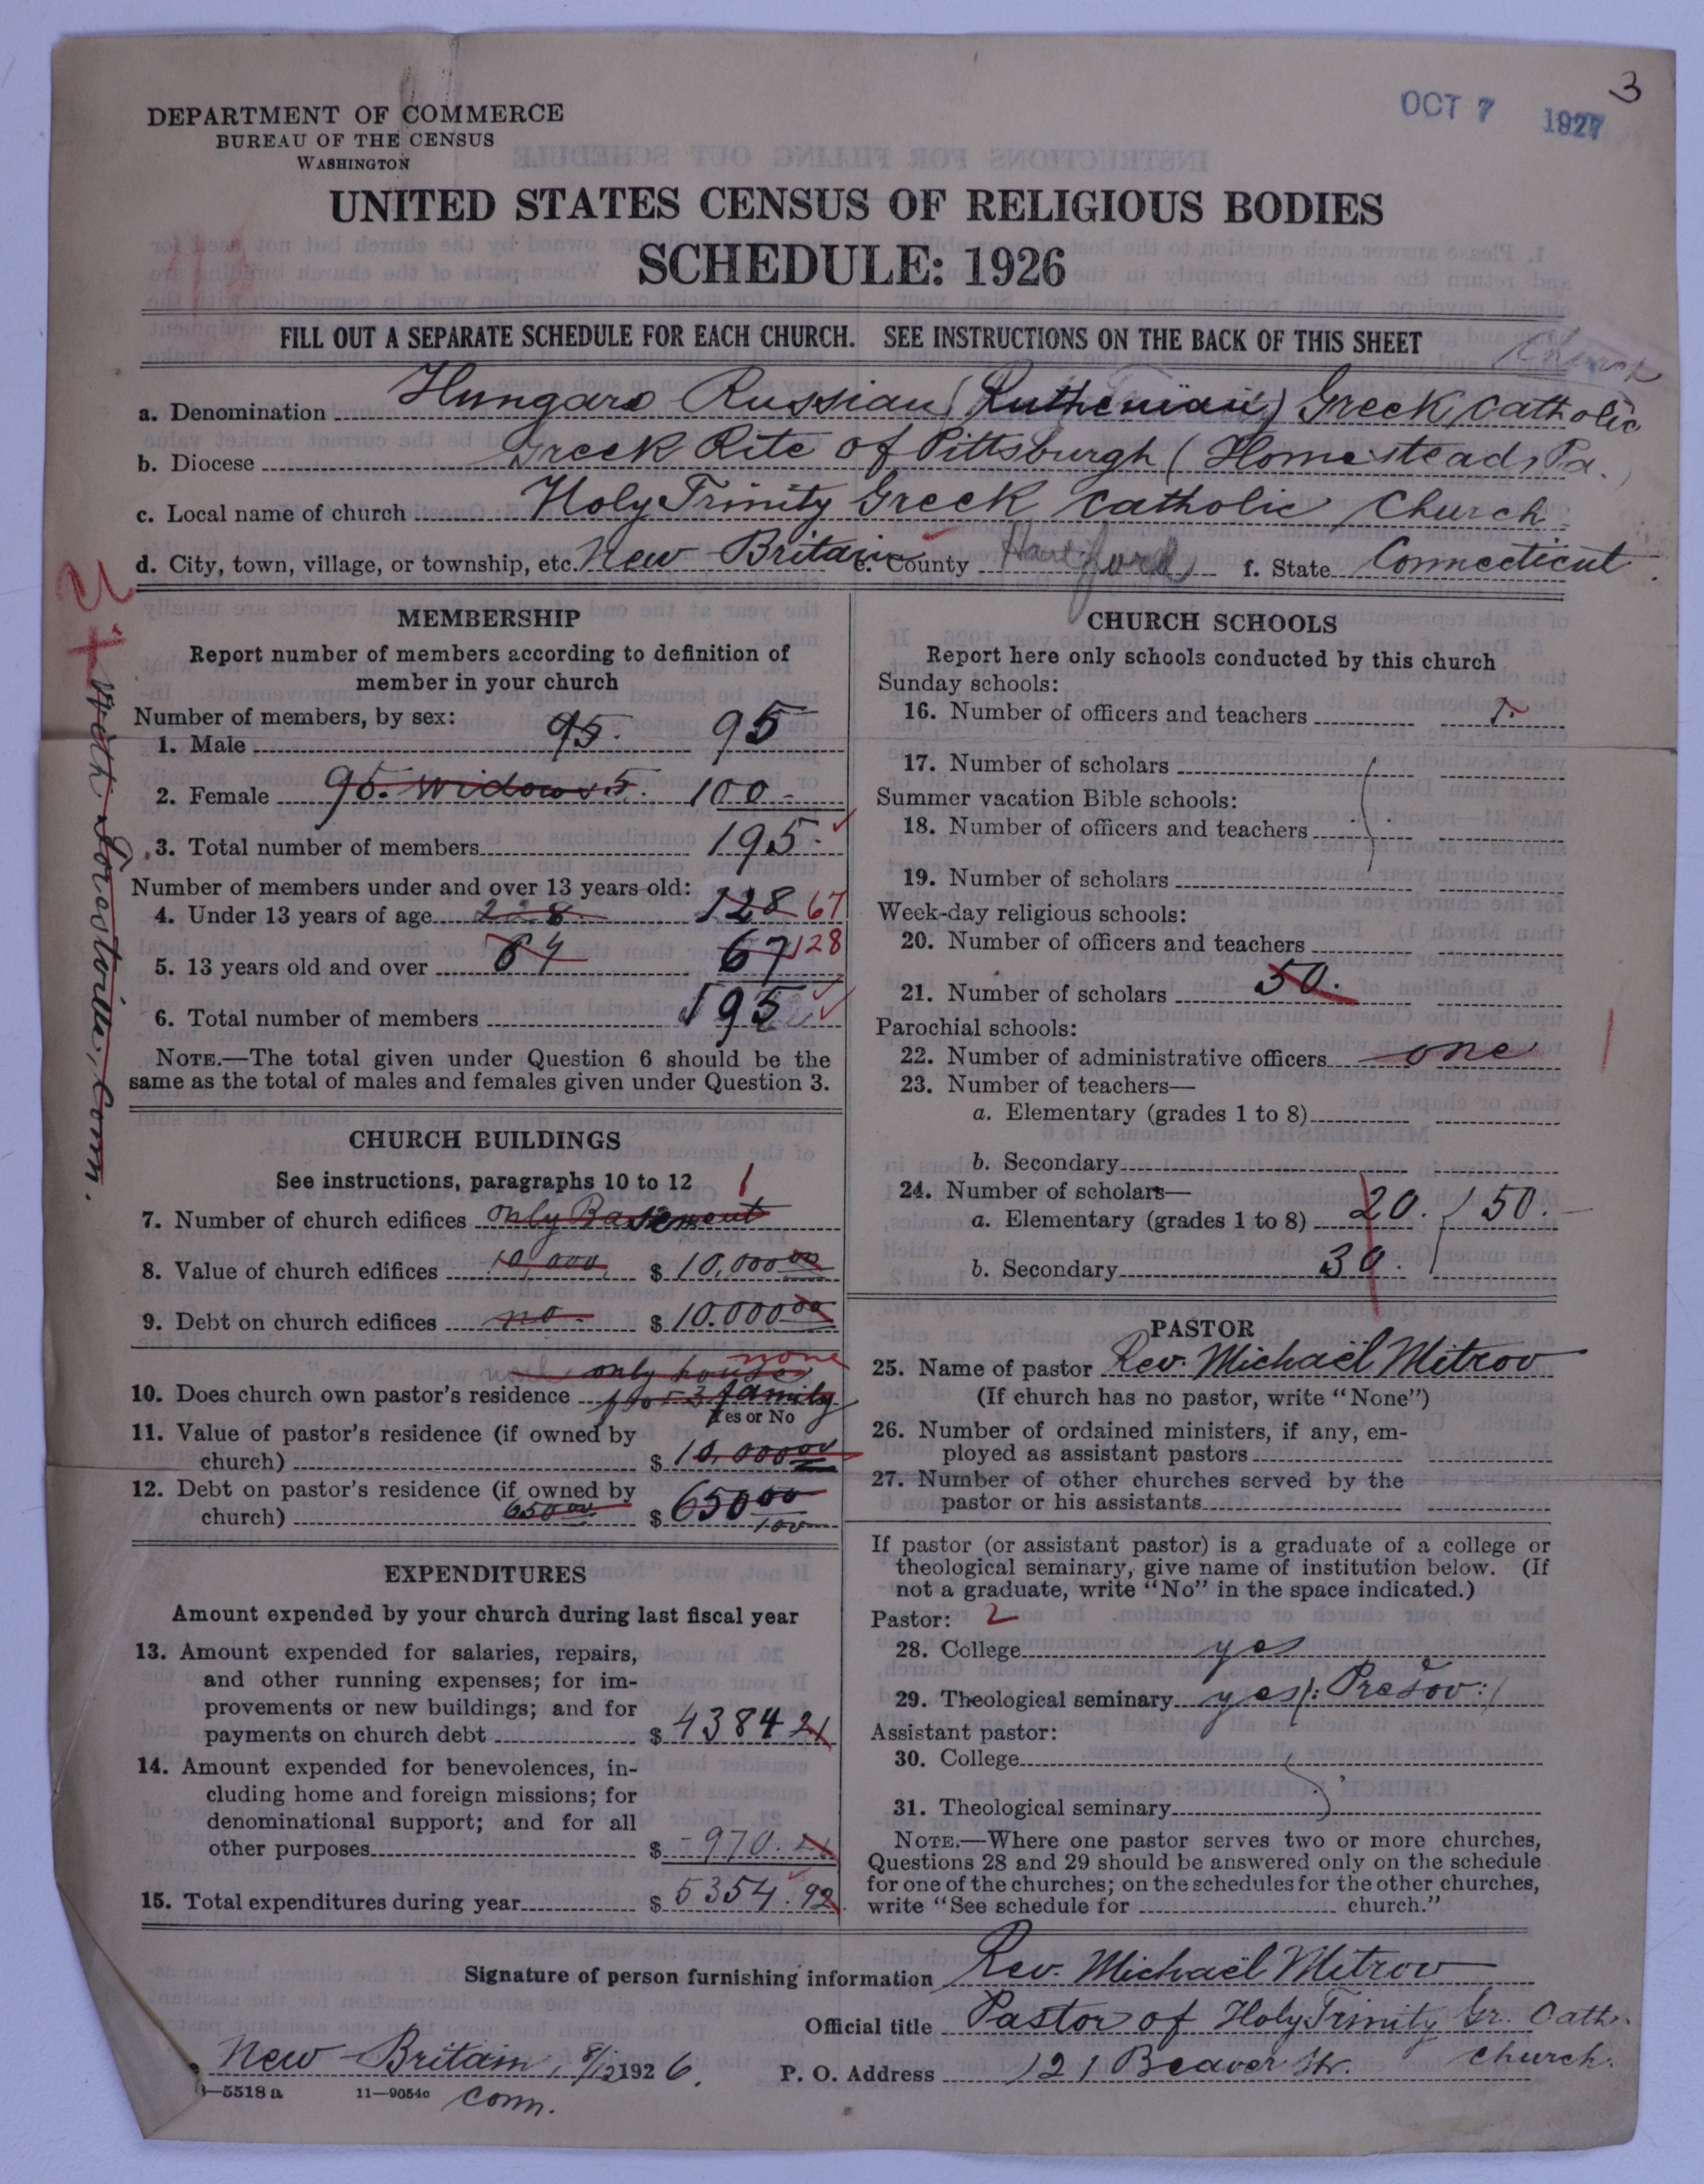 3
OCT 7 1927
DEPARTMENT OF COMMERCE
BUREAU OF THE CENSUS
WASHINGTON
UNITED STATES CENSUS OF RELIGIOUS BODIES
SCHEDULE: 1926
FILL OUT A SEPARATE SCHEDULE FOR EACH CHURCH. SEE INSTRUCTIONS ON THE BACK OF THIS SHEET
a. Denomination Hungaro Russian (Ruthenian) Greek Catholic
b. Diocese Greek Rite of Pittsburgh (Homestead, Pa.)
c. Local name of church Holy Trinity Greek Catholic Church
d. City, town, village, or township, etc. New Britain e. County Hartford f. State Connecticut.
With Forestville, Conn.
MEMBERSHIP
Report number of members according to definition of
member in your church
Number of members, by sex:
1. Male 95. 95
2. Female 95. widows 5. 100-
3. Total number of members 195.
Number of members under and over 13 years old:
4. Under 13 years of age 228 128 67
5. 13 years old and over 67 128
6. Total number of members 195
NOTE.—The total given under Question 6 should be the
same as the total of males and females given under Question 3.
CHURCH BUILDINGS
See instructions, paragraphs 10 to 12
1
7. Number of church edifices only Basement
8. Value of church edifices 10,000 $ 10,000 00
9. Debt on church edifices no. $ 10.000 00
none
only house
10. Does church own pastor's residence for 3 family
Yes or No
11. Value of pastor's residence (if owned by
church) $ 10.000 00
12. Debt on pastor's residence (if owned by
church) 650 00 $ 650 00/100
EXPENDITURES
Amount expended by your church during last fiscal year
13. Amount expended for salaries, repairs,
and other running expenses; for im-
provements or new buildings; and for
payments on church debt $ 4384 21
14. Amount expended for benevolences, in-
cluding home and foreign missions; for
denominational support; and for all
other purposes $ 970.
15. Total expenditures during year $ 5354.92
CHURCH SCHOOLS
Report here only schools conducted by this church
Sunday schools:
16. Number of officers and teachers 1.
17. Number of scholars
Summer vacation Bible schools:
18. Number of officers and teachers
19. Number of scholars
Week-day religious schools:
20. Number of officers and teachers
21. Number of scholars 50.
Parochial schools:
22. Number of administrative officers one
23. Number of teachers—
a. Elementary (grades 1 to 8)
b. Secondary
24. Number of scholars—
a. Elementary (grades 1 to 8) 20. 50.
b. Secondary 30.
PASTOR
25. Name of pastor Rev. Michael Mitrov
(If church has no pastor, write "None")
26. Number of ordained ministers, if any, em-
ployed as assistant pastors
27. Number of other churches served by the
pastor or his assistants
If pastor (or assistant pastor) is a graduate of a college or
theological seminary, give name of institution below. (If
not a graduate, write "No" in the space indicated.)
Pastor: 2
28. College yes
29. Theological seminary yes /: Prešov :/
Assistant pastor:
30. College
31. Theological seminary
NOTE.—Where one pastor serves two or more churches,
Questions 28 and 29 should be answered only on the schedule
for one of the churches; on the schedules for the other churches,
write "See schedule for church."
Signature of person furnishing information Rev. Michael Mitrov
Official title Pastor of Holy Trinity Gr. Cath.
church.
New Britain, 8/12 1926. P. O. Address 121 Beaver Str.
Conn.
8—5518 a 11—9054c